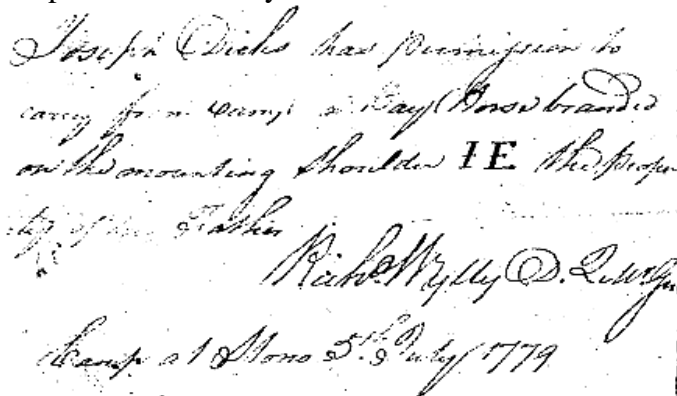 Joseph Dicks has permission to
carry from Camp a Bay Horse branded
on the mounting shoulder IE the proper
ty of his Father
Richd. Wylly D. Q. Mr. Gn
Camp at Stono 5th. July 1779